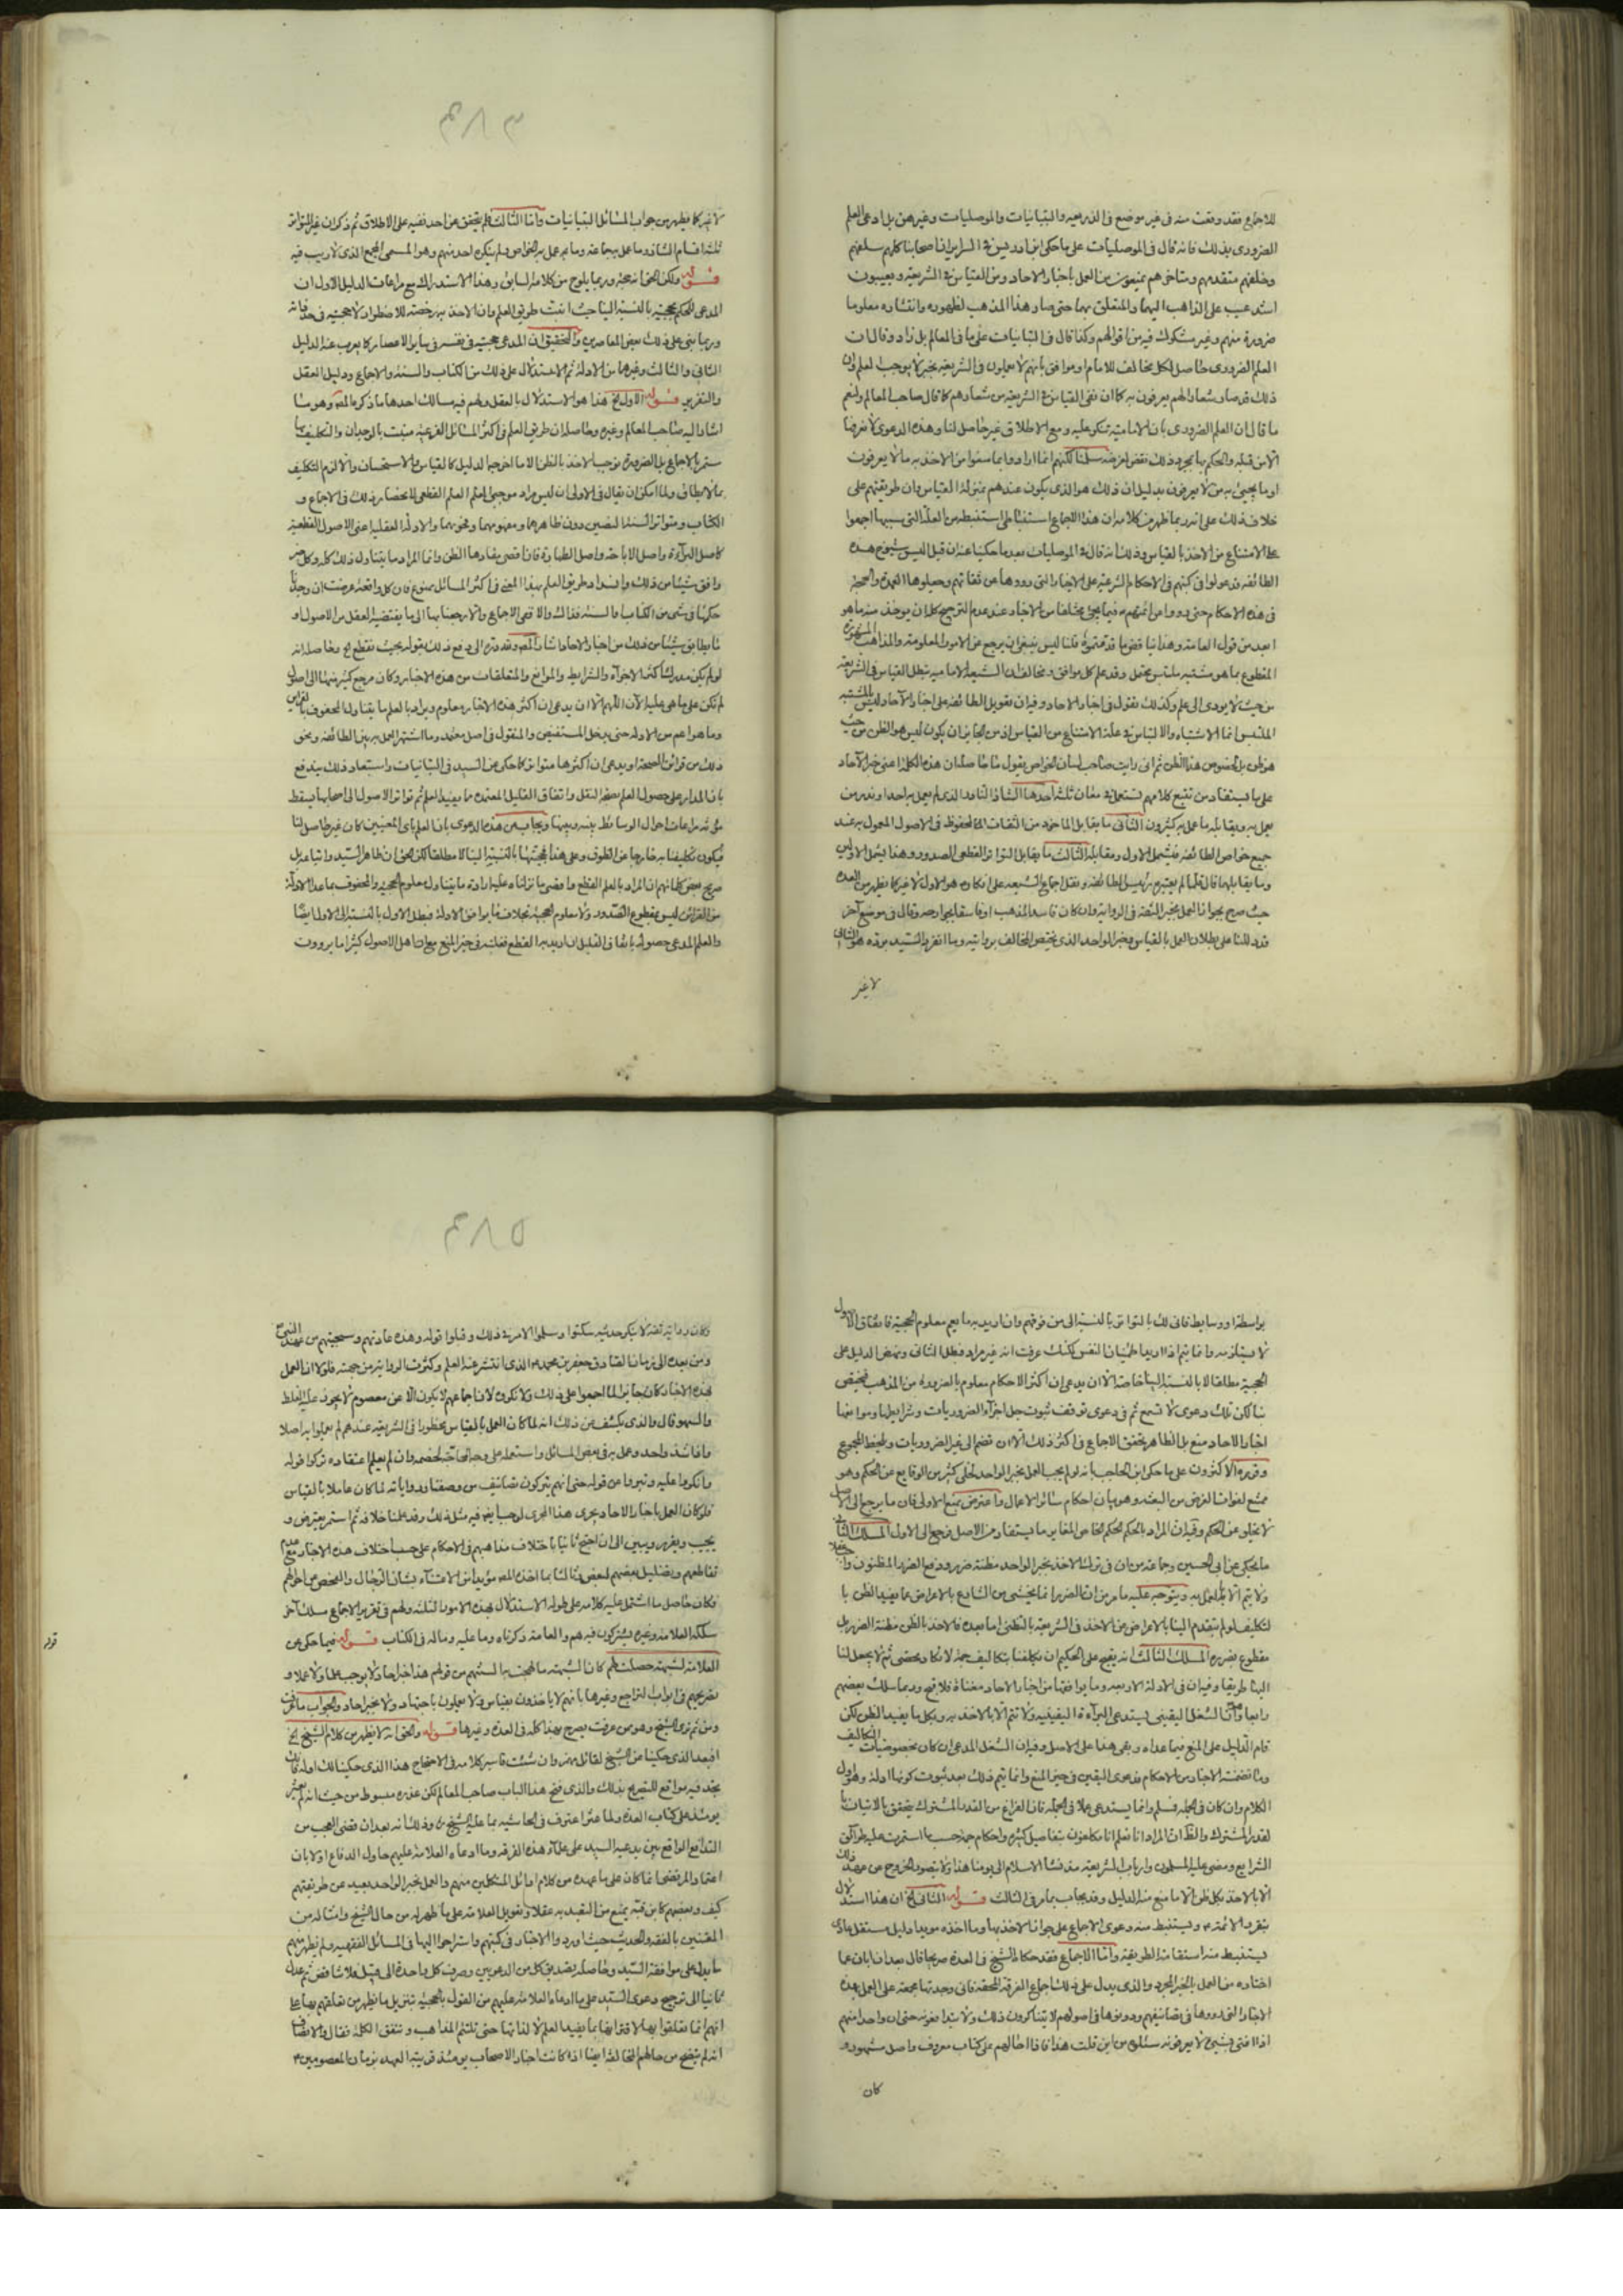 للاجماع فقد وقعت منه فى غير موضع فى الذريعه والتبانيات والموصليات وغيرهن بل ادعى العلم
الضرورى بذلك فانه قال فى الموصليات على ما حكى ابن ادريس فى السراير ان اصحابنا كلهم سلفهم
وخلفهم متقدمهم ومتاخرهم يمنعون من العمل باخبار الاحاد ومن القياس فى الشريعه ويعيبون
اشد عيب على الذاهب اليهما والمتعلق بهما حتى صار هذا المذهب لظهوره وانتشاره معلوما
ضرورة منهم وغير مشكوك فيه من اقوالهم وكذا قال فى التبانيات على ما فى المعالم بل زاد وقال ان
العلم الضرورى حاصل لكل مخالف للامام او موافق بانهم لا يعملون فى الشريعة بخبر لا يوجب العلم وان
ذلك قد صار شعارا لهم يعرفون به كما ان نفى القياس فى الشريعة من شعارهم كما قال صاحب المعالم ونعم
ما قال ان العلم الضرورى بان الامامية تنكر عليه ومع الاطلاق غير حاصل لنا وهذه الدعوى
خلاف ذلك على انه ربما ظهر من كلامه ان هذا الاجماع استنباطى استنبطه من العلة التى سببها اجمعوا
على الامتناع من الاخذ بالقياس وذلك انه قال فى الموصليات بعد ما حكينا عنه ان قيل اليس شيوخ هذه
الطائفه قد عولوا فى كتبهم فى الاحكام الشرعية على الاخبار التى رووها عن ثقاتهم وجعلوها العمدة والحجة
فى هذه الاحكام حتى رووا عن ائمتهم فيما يجئ مختلفا من الاخبار عند عدم الترجيح كله ان يوخذ منه ما هو
ابعد من قول العامة وهذا يناقض ما قدمتموه قلنا ليس ينبغى ان يرجع عن الامور المعلومة والمذاهب المشهورة
المقطوع بما هو مشتبه ملتبس محتمل وقد علم كل موافق ومخالف ان الشيعة الامامية تبطل القياس فى الشريعة
من حيث لا يودى الى علم وكذلك نقول فى اخبار الاحاد وفيه ان تعويل الطائفه على اخبار الاحاد ليس بالمشتبه
على ما يستفاد من تتبع كلامهم تستعمل فى معان ثلثة احدها الشاذ النادر الذى لم يعمل به احد او ندر من
يعمل به ويقابله ما عمل به كثيرون الثانى ما يقابل الماخوذ من الثقات المحفوظ فى الاصول المعمول به عند
جميع خواص الطائفه فيشمل الاول ومقابله الثالث ما يقابل المتواتر القطعى الصدور وهذا يشمل الاولين
حيث صرح بجواز العمل بخبر الثقة فى الرواية وان كان فاسد المذهب او فاسقا بجوارحه وقال فى موضع آخر
قد دللنا على بطلان العمل بالقياس وخبر الواحد الذى يختص المخالف بروايته وما انفرد السيد برده هو الثانى
لا غير
٣٨٤
لا غير كما يظهر من جواب المسائل التبانيات واما الثالث فلم يتحقق من احد نفيه على الاطلاق ثم ذكر ان غير المتواتر
ثلثة اقسام الشاذ وما عمل به جماعة وما لم يعمل به الخواص ولم ينكره احد منهم وهو المسمى المجمع الذى لا ريب فيه
قوله ولكن الحق انه حجة وربما يلوح من كلامه السابق وهذا الاستدراك مع مراعات الدليل الاول ان
المدعى الحكم بحجيته بالنسبة الينا حيث انبت طريق العلم وان الاخذ به رخصة للاضطرار لا حجيته فى حد ذاته
وربما بنى على ذلك بعض المعاصرين والتحقيق ان المدعى حجيته فى نفسه فى ساير الاعصار كما يعرب عنه الدليل
الثانى والثالث وغيرهما من الادلة ثم الاستدلال على ذلك من الكتاب والسنة والاجماع ودليل العقل
والتقرير قوله الاول الخ هذا هو الاستدلال بالعقل ولهم فيه مسالك احدها ما ذكره المص وهو ما
اشار اليه صاحب المعالم وغيره وحاصله ان طريق العلم فى اكثر المسائل الفرعية منبت بالوجدان والتكليف بها
مستمر بالاجماع بل الضرورة فوجب الاخذ بالظن الا ما اخرجه الدليل كالقياس والاستحسان والا لزم التكليف
بما لا يطاق ولما امكن ان يقال فى الاولى ان ليس مراد موجبى العلم العلم القطعى لانحصار ذلك فى الاجماع و
كاصل البرآءة واصل الاباحة واصل الطهارة فان اقصى مفادها الظن وانما المراد ما يتناول ذلك كله وكل خبر
وافق شيئا من ذلك وانسداد طريق العلم بهذا المعنى فى اكثر المسائل ممنوع فان كل واقعة عرضت ان وجدنا
حكمها فى شئ من الكتاب والسنة فذاك والا ففى الاجماع والا رجعنا بها الى ما يقتضيه العقل من الاصول او
ما يطابق شيئا من ذلك من اخبار الاحاد اشار المص وقده الى دفع ذلك بقوله بحيث نقطع الخ وحاصله انه
لم تكن على ما هى عليه الان اللهم الا ان يدعى ان اكثر هذه الاخبار معلوم ويراد بالعلم ما يتناول المحفوف بالقراين
وما هو اعم من الادلة حتى يدخل المستفيض والمنقول فى اصل معتمد وما اشتهر العمل به بين الطائفه ونحو
ذلك من قراين الصحة او يدعى ان اكثرها متواتر كما حكى عن السيد فى التبانيات واستبعاد ذلك يندفع
مؤنة مراعات احوال الوسائط بيننا وبينها ويجاب عن هذه الدعوى بان العلم باى المعنيين كان غير حاصل لنا
والعلم المدعى حصوله باتفاق القليل ان اريد به القطع فعلته فى حيز المنع مع ان اهل الاصول كثيرا ما يروون
بواسطة او وسايط فانى لك بالتواتر بالنسبة الى من فوقهم وان اريد به ما يعم معلوم الحجية فاتفاق الاول
لا يستلزمه وانما يتم اذا اريد اطمينان النفس لكنك عرفت انه غير مراد فبطل الثانى ونهض الدليل على
الحجية مطلقا لا بالنسبة الينا خاصة الا ان يدعى ان اكثر الاحكام معلوم بالضرورة من المذهب فيخص
بما كان تلك دعوى لا تسمع ثم فى دعوى توقف ثبوت جل اجزآء الضروريات وشرايطها وموانعها
اخبار الاحاد منع بل الظاهر تحقق الاجماع فى اكثر ذلك الا ان تضم الى غير الضروريات ويلحظ المجموع
وقرره الاكثرون على ما حكى ابن الحاجب بانه لو لم يجب العمل بخبر الواحد لخلى كثير من الوقايع عن الحكم وهو
ممتنع لفوات الغرض من البعثة وهو بيان احكام سائر الاعمال واعترض بمنع الاولى فان ما يرجع الى الاصل
لا يخلو عن الحكم وفيه ان المراد بالحكم الحكم الخاص المغاير ما يستفاد من الاصل فرجع الى الاول المسلك الثانى
ما يحكى عن ابى الحسين وجماعة من ان فى ترك الاخذ بخبر الواحد مظنة ضرر ودفع الضرر المظنون واجب عقلا
ولا يتم الا بالعمل به ويتوجه عليه ما مر من ان الضرر انما يخشى من الشارع بالاعراض عما يفيد الظن با
لتكليف لو لم يتقدم الينا بالاعراض عن الاخذ فى الشريعة بالظن اما بعده فالاخذ بالظن مظنة الضرر بل
مقطوع بضرره المسلك الثالث انه يقبح على الحكيم ان يكلفنا بتكاليف جمة لا تكاد يحصى ثم لا يجعل لنا
اليها طريقا وفيه ان فى الادلة الاربعة وما يوافقها من اخبار الاحاد مغناة فلا قبح وربما سلك بعضهم
رابعا وان الشغل اليقينى يستدعى البرآءة اليقينيه ولا تتم الا بالاخذ به وبكل ما يفيد الظن لكن
قام الدليل على المنع فيما عداه وبقى هنا على الاصل وفيه ان الشغل المدعى ان كان بخصوصيات التكاليف
وما تضمنته الاخبار من الاحكام فدعوى اليقين فى حيز المنع وانما يتم ذلك بعد ثبوت كونها ادلة وهو اول
الكلام وان كان فى الجملة فسلم وانما يستدعى عملا فى الجملة فان الفراغ من القدر المشترك يتحقق بالاتيان با
لقدر المشترك والظاهر ان المراد انا نعلم انا مكلفون بتفاصيل كثيرة واحكام جمة حسبما استمرت عليه طرآئق
الشرايع ومضى عليه المسلمون وارباب الشريعة منذ نشأ الاسلام الى يومنا هذا ولا يتصور الخروج من عهدة ذلك
الا بالاخذ بكل ظن الا ما منع منه الدليل وقد يجاب بما مر فى الثالث قوله الثانى الخ ان هذا استدلال
بتقرير الائمة ويستنبط منه دعوى الاجماع على جواز الاخذ بها وما اخذه مويدا دليل مستقل
يستنبط منه استقامة الطريقة واما الاجماع فقد حكاه الشيخ فى العدة صريحا قال بعد ان ابان عما
اختاره من العمل بالخبر المجرد والذى يدل على ذلك اجماع الفرقة المحقة فانى وجدتها مجمعة على العمل بهذه
الاخبار التى رووها فى تصانيفهم ودونوها فى اصولهم لا يتناكرون ذلك ولا يتدافعونه حتى ان واحدا منهم
اذا افتى بشيئ لا يعرفونه سئلوه من اين قلت هذا فاذا احالهم على كتاب معروف واصل مشهور و
كان
٣٨٥
وكان رواية ثقة لا ينكر حديثه سكتوا وسلموا الامر فى ذلك وقبلوا قوله وهذه عادتهم وسجيتهم من عهد النبى
ومن بعده الى زمان الصادق جعفر بن محمد الذى انتشر عنه العلم وكثرت الرواية من جهته فلولا ان العمل
بهذه الاخبار كان جايزا لما اجمعوا على ذلك ولا نكروه لان اجماعهم لا يكون الا عن معصوم لا يجوز عليه الغلط
والسهو قال والذى يكشف عن ذلك انه لما كان العمل بالقياس محظورا فى الشريعة عندهم لم يعملوا به اصلا
واذا شذ واحد وعمل به فى بعض المسائل واستعمله على وجه المحاجة لخصمه وان لم يعلم اعتقاده تركوا قوله
وانكروا عليه وتبروا من قوله حتى انهم يتركون تصانيف من وصفناه ورواياته لما كان عاملا بالقياس
فلو كان العمل باخبار الاحاد يجرى هذا المجرى لوجب ايضا فيه مثل ذلك وقد علمنا خلافه ثم استمر يعترض و
يجيب ويقرر ويبين الى ان احتج ثانيا باختلاف مذاهبهم فى الاحكام على حسب اختلاف هذه الاخبار مع عدم
تقاطعهم وتضليل بعضهم لبعض ثالثا بما اخذه المص مؤيدا من الاعتنآء بشان الرجال والفحص عن احوالهم
فكان حاصل ما اشتمل عليه كلامه على طوله الاستدلال بهذه الامور الثلثة ولهم فى تقرير الاجماع مسلك آخر
سلكه العلامة وغيره ويشركون فيه هم والعامة ذكرناه وما عليه وماله فى الكتاب قوله فيما حكى عن
العلامة لشبهة حصلت لهم كان الشبهة ما لهجت به السنتهم من قولهم هذا خبر احاد ولا يوجب علما ولا عملا و
تصريحهم فى ابواب التراجيح وغيرها بانهم لا ياخذون بقياس ولا يعملون باجتهاد ولا بخبر احاد والجواب ما عرفت
ومن ثم ترى الشيخ وهو من عرفت يصرح بهذا كله فى العدة وغيرها قوله والحق انه لا يظهر من كلام الشيخ الخ
افبعد الذى حكينا عن الشيخ لقائل بهذا وان شئت فاسبر كلامه فى الاحتجاج هذا الذى حكينا لك اوله
يجد فيه مواقع للتصريح بذلك والذى فتح هذا الباب صاحب المعالم لكن عذره مبسوط من حيث انه لم يعثر
يومئذ على كتاب العدة ولما عثر اعترف فى الحاشيه بما عليه الشيخ وذلك انه بعد ان قضى العجب من
التدافع الواقع بين مدعيه السيد على علمآء هذه الفرقة وما ادعاه العلامة عليهم حاول الدفاع اولا بان
اعتماد المرتضى انما كان على ما عهده من كلام اوائل المتكلمين منهم والعمل بخبر الواحد بعيد عن طريقتهم
كيف وبعضهم كابن قبة يمنع من التعبد به عقلا وتعويل العلامة على ما ظهر له من حال الشيخ وامثاله من
المعتنين بالفقه والحديث حيث اوردوا الاخبار فى كتبهم واستراحوا اليها فى المسائل الفقهيه ولم يظهر منهم
ما يدل على موافقة السيد وحاصله تصديق كل من الدعويين وصرف كل واحدة الى قبيل فلا تناقض ثم عدل
ثانيا الى ترجيح دعوى السيد على ما ادعاه العلامة عليهم من القول بالحجية بتنزيل ما يظهر من تعلقهم بها على
انهم انما تعلقوا بها لاقترانها بما يفيد العلم لا لذاتها حتى تلتئم المذاهب وتتفق الكلمة فقال والانصاف
انه لم يتضح من حالهم المخالفة ايضا اذا كانت اخبار الاصحاب يومئذ قريبة العهد بزمان المعصومين
قوله